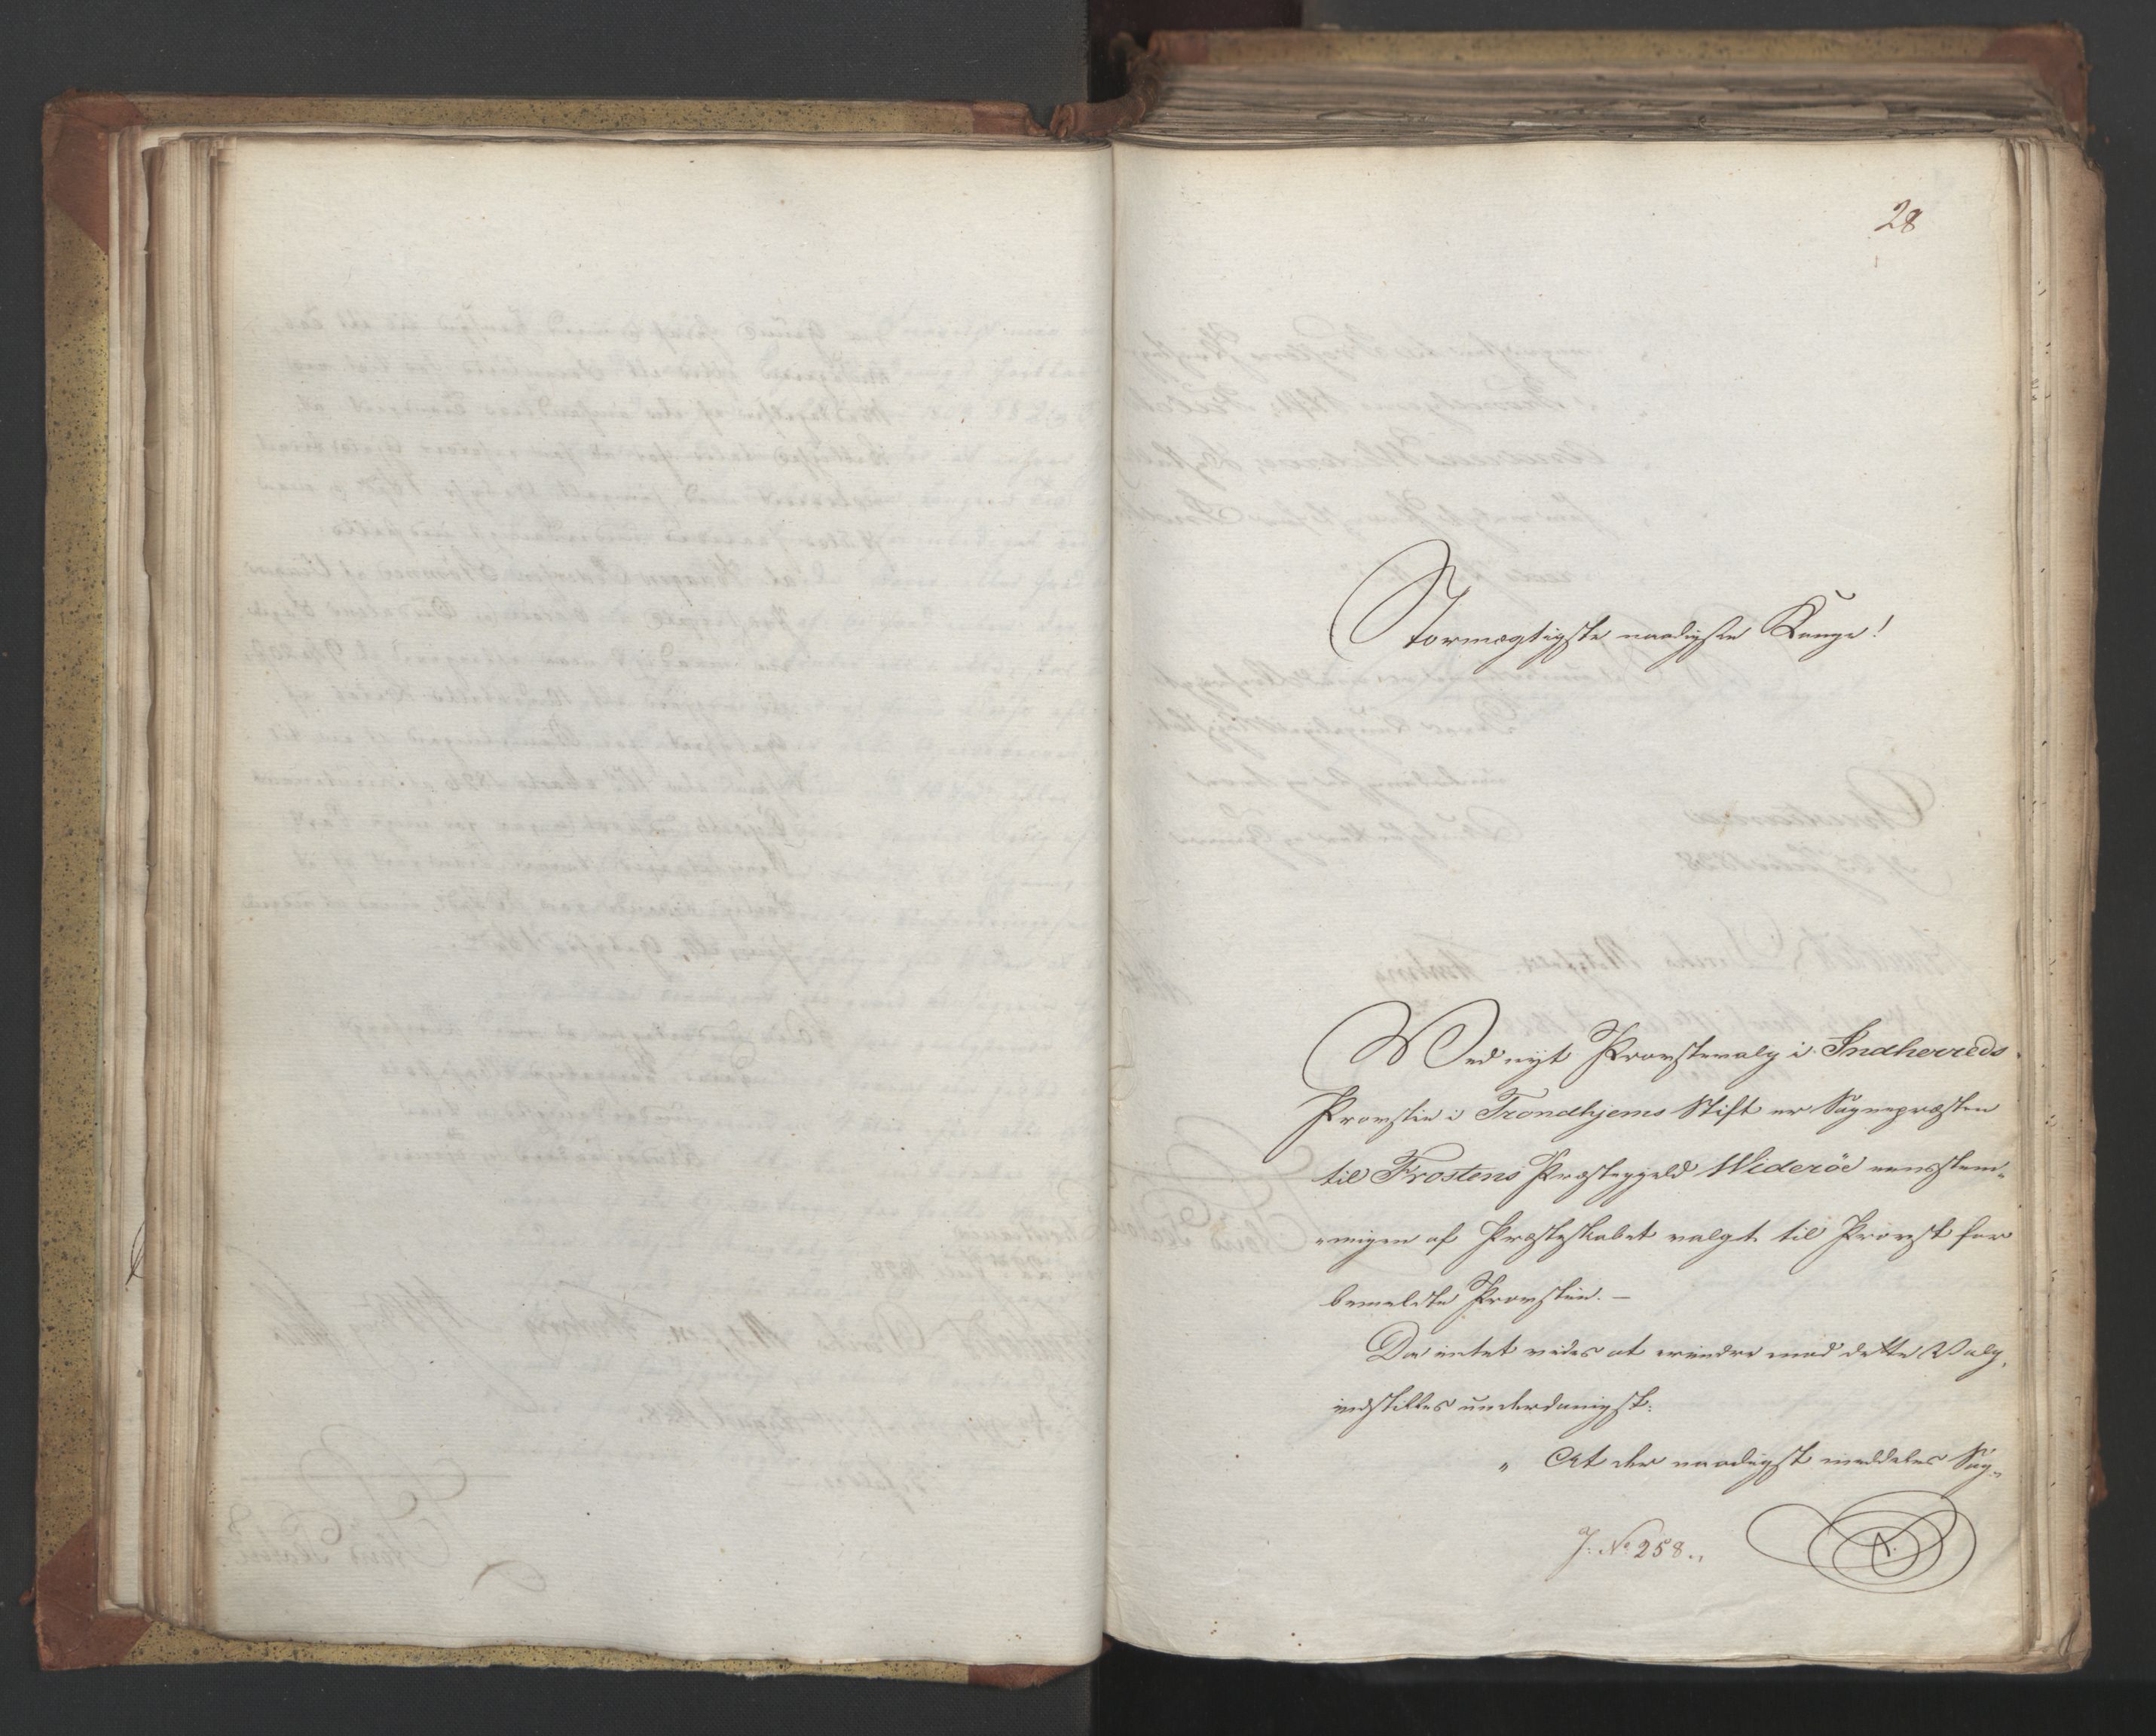 28
Stormægtigste naadigste Konge!
Ved nyt Provstevalg i Indherreds
Provstie i Trondhjems Stift er Sognepræsten
til Frostens Præstegjeld Wideröe eensstem-
migen af Præsteskabet valgt til Provst for
bemeldte Provstie. —
Da intet vides at erindre mod dette Valg,
indstilles underdanigst:
" At der naadigst meddeles Sog-
J. No 258.,